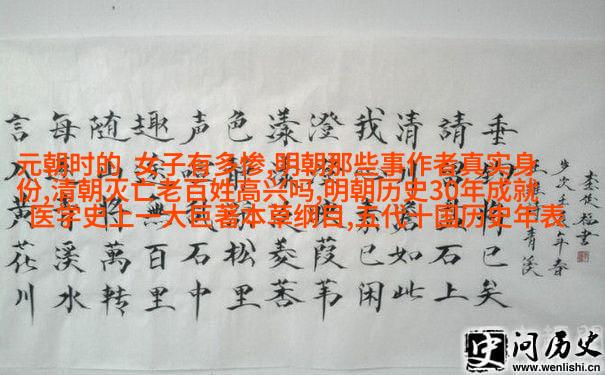 元朝时的 女子有多惨,明朝那些事作者真实身
份,清朝灭亡老百姓高兴吗,明朝历史30年成就
医学史上一大巨著本草纲目,五代十国历史年表
言入黄花川
每溪水
随山将萬转
趣無百里
声石中
色松里
漾菱荇
澄葭苇
我已闲
清川如此
請石上
垂钓将已矣
青溪
史问历史
www.wenlishi.cn